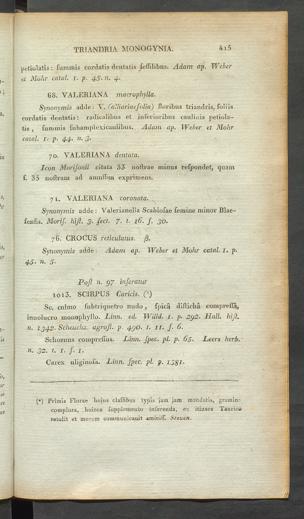 TRIANDRIA MONOGYNIA. 415
petiolatis: summis cordatis dentatis sessilibus. Adam ap. Weber
et Mohr catal. 1. p. 45. n. 4.
68. VALERIANA macrophylla.
Synonymis adde: V. (alliariaefolia) floribus triandris, foliis
cordatis dentatis: radicalibus et inferioribus caulinis petiola-
tis, summis subamplexicaulibus. Adam ap. Weber et Mohr
catal. 1. p. 44. n. 3.
70. VALERIANA dentata.
Icon Morisonii citata 33 nostrae minus respondet, quam
f. 35 nostram ad amussim exprimens.
71. VALERIANA coronata.
Synonymis adde: Valerianella Scabiosae semine minor Blae-
sensis. Moris. hist. 3. sect. 7. t. 16. f. 30.
76. CROCUS reticulatus. β.
Synonymis adde: Adam ap. Weber et Mohr catal. 1. p.
45. n. 5.
Post n. 97 inseratur
1013. SCIRPUS Caricis. (*)
Sc. culmo subtriquetro nudo, spica disticha compressa,
involucro monophyllo. Linn. ed. Willd. 1. p. 292. Hall. hist.
n. 1342. Scheuchz. agrost. p. 490. t. 11. f. 6.
Schoenus compressus. Linn. spec. pl. p. 65. Leers herb.
n. 32. t. 1. f. 1.
Carex uliginosa. Linn. spec. pl. p. 1381.
(*) Primis Florae hujus classibus typis jam jam mandatis, gramina
complura, hoicce supplemento inserenda, ex itinere Taurico
retulit et mecum communicavit amiciss. Steven.